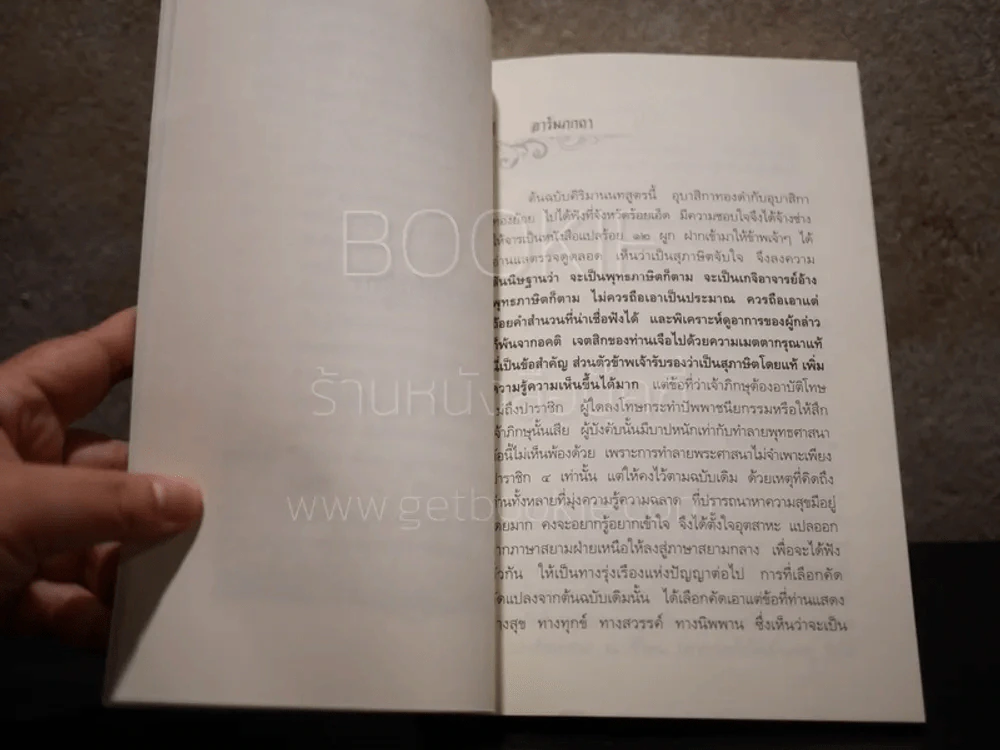 อารัมภกถา
ต้นฉบับคิริมานนทสูตรนี้ อุบาสิกาทองดำกับอุบาสิกา
ทองย้อย ไปได้ฟังที่จังหวัดร้อยเอ็ด มีความชอบใจจึงได้จ้างช่าง
ให้จารเป็นหนังสือแปลร้อย ๑๒ ผูก ฝากเข้ามาให้ข้าพเจ้าๆ ได้
อ่านแลตรวจดูตลอด เห็นว่าเป็นสุภาษิตจับใจ จึงลงความ
สันนิษฐานว่า จะเป็นพุทธภาษิตก็ตาม จะเป็นเกจิอาจารย์อ้าง
พุทธภาษิตก็ตาม ไม่ควรถือเอาเป็นประมาณ ควรถือเอาแต่
ถ้อยคำสำนวนที่น่าเชื่อฟังได้ และพิเคราะห์ดูอาการของผู้กล่าว
พ้นจากอคติ เจตสิกของท่านเจือไปด้วยความเมตตากรุณาแท้
นี้เป็นข้อสำคัญ ส่วนตัวข้าพเจ้ารับรองว่าเป็นสุภาษิตโดยแท้ เพิ่ม
ความรู้ความเห็นขึ้นได้มาก แต่ข้อที่ว่าเจ้าภิกษุต้องอาบัติโทษ
ไม่ถึงปาราชิก ผู้ใดลงโทษกระทำปัพพาชนียกรรมหรือให้สึก
เจ้าภิกษุนั้นเสีย ผู้บังคับนั้นมีบาปหนักเท่ากับทำลายพุทธศาสนา
ข้อนี้ไม่เห็นพ้องด้วย เพราะการทำลายพระศาสนาไม่จำเพาะเพียง
ปาราชิก ๔ เท่านั้น แต่ให้คงไว้ตามฉบับเดิม ด้วยเหตุที่คิดถึง
ท่านทั้งหลายที่มุ่งความรู้ความฉลาด ที่ปรารถนาหาความสุขมีอยู่
โดยมาก คงจะอยากรู้อยากเข้าใจ จึงได้ตั้งใจอุตสาหะ แปลออก
จากภาษาสยามฝ่ายเหนือให้ลงสู่ภาษาสยามกลาง เพื่อจะได้ฟัง
ทั่วกัน ให้เป็นทางรุ่งเรืองแห่งปัญญาต่อไป การที่เลือกคัด
ดัดแปลงจากต้นฉบับเดิมนั้น ได้เลือกคัดเอาแต่ข้อที่ท่านแสดง
ทางสุข ทางทุกข์ ทางสวรรค์ ทางนิพพาน ซึ่งเห็นว่าจะเป็น
BOOKIE
ร้านหนังสือบุ๊คกี้
www.getbookie.com